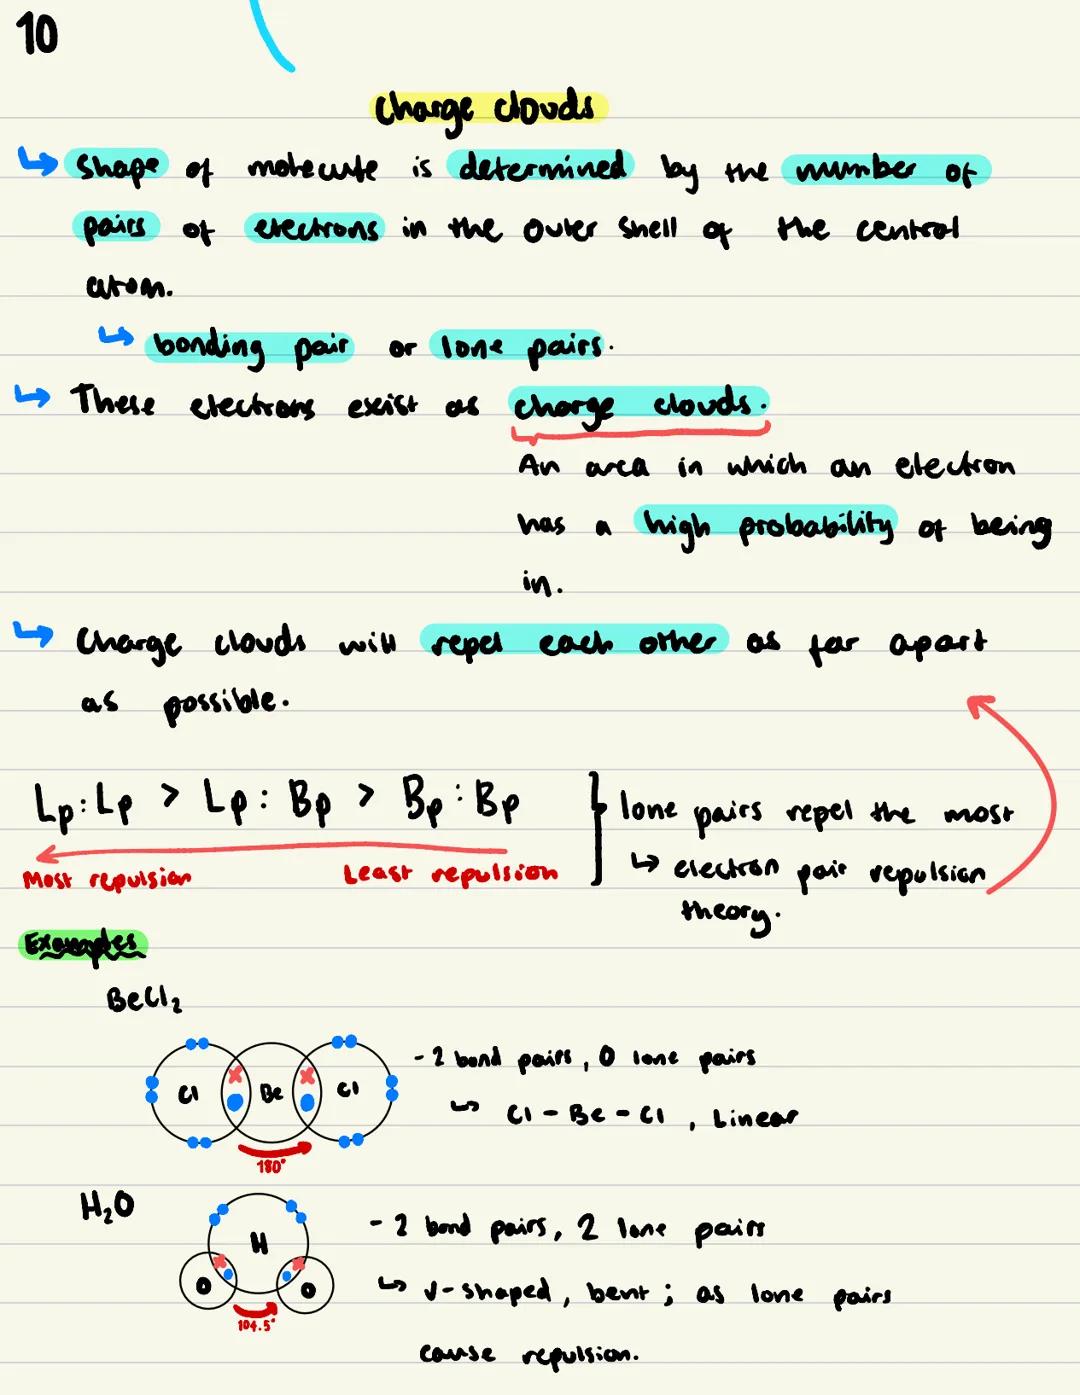 10
Charge clouds
↳ Shape of molecule is determined by the number of
pairs of electrons in the outer shell of the central
atom.
↳ bonding pair or lone pairs.
↳ These electrons exist as charge clouds.
An area in which an electron
has a high probability of being
in.
↳ Charge clouds will repel each other as far apart
as possible.
Lp:Lp > Lp:Bp > Bp:Bp
Most repulsion Least repulsion
lone pairs repel the most
↳ electron pair repulsion
theory.
Examples
BeCl₂
Cl Be Cl
180°
- 2 bond pairs, 0 lone pairs
↳ Cl - Be - Cl, Linear
H₂O
H
O O
104.5°
- 2 bond pairs, 2 lone pairs
↳ V-shaped, bent; as lone pairs
cause repulsion.